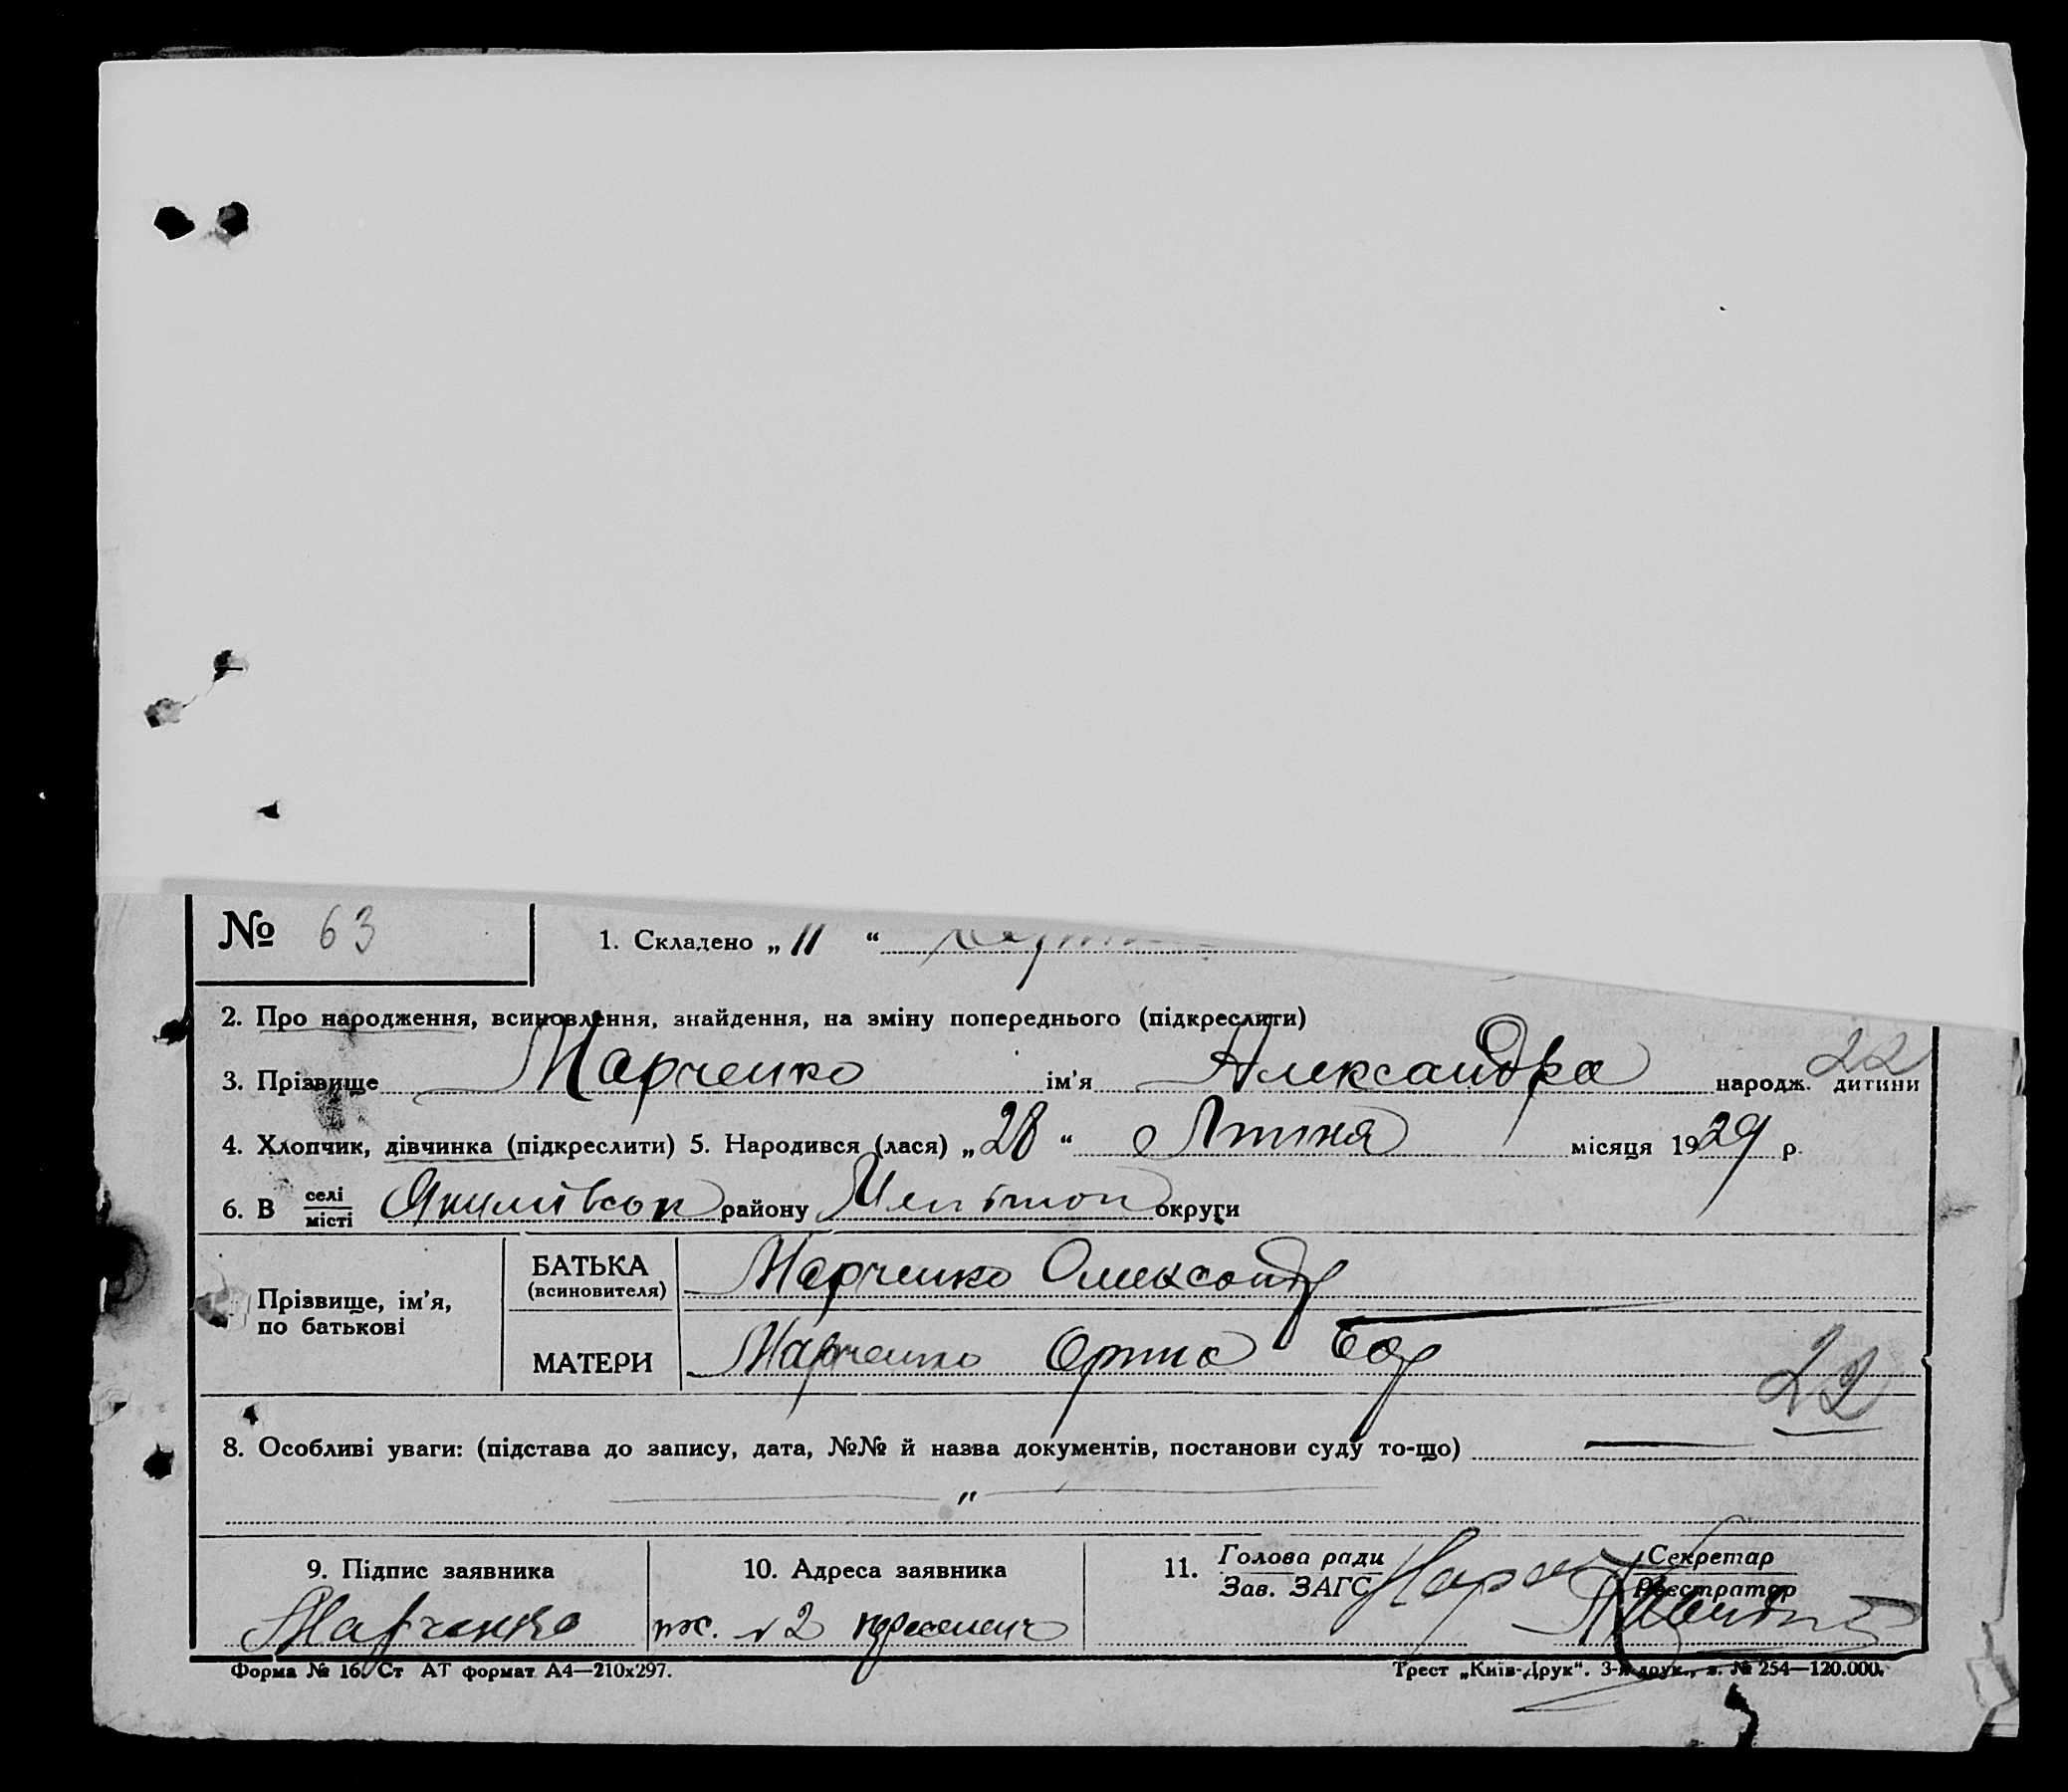 № 63
1. Складено „ 11 “
2. Про народження, всиновлення, знайдення, на зміну попереднього (підкреслити)
22
3. Прізвище Марченко ім'я Александра народж. дитини
4. Хлопчик, дівчинка (підкреслити) 5. Народився (лася) „ 28 “ Липня місяця 1929 р.
6. В селі місті Якимівськ району округи
БАТЬКА Марченко Олександр
(всиновителя)
Прізвище, ім'я,
по батькові
МАТЕРИ Марченко Орина
22
8. Особливі уваги: (підстава до запису, дата, №№ й назва документів, постанови суду то-що)
"
9. Підпис заявника 10. Адреса заявника 11. Голова ради Секретар
Зав. ЗАГС Реєстратор
Марченко 2
Форма № 16. Ст АТ формат А4—210х297. Трест „Київ-Друк“. 3-я друк., з. № 254—120.000.